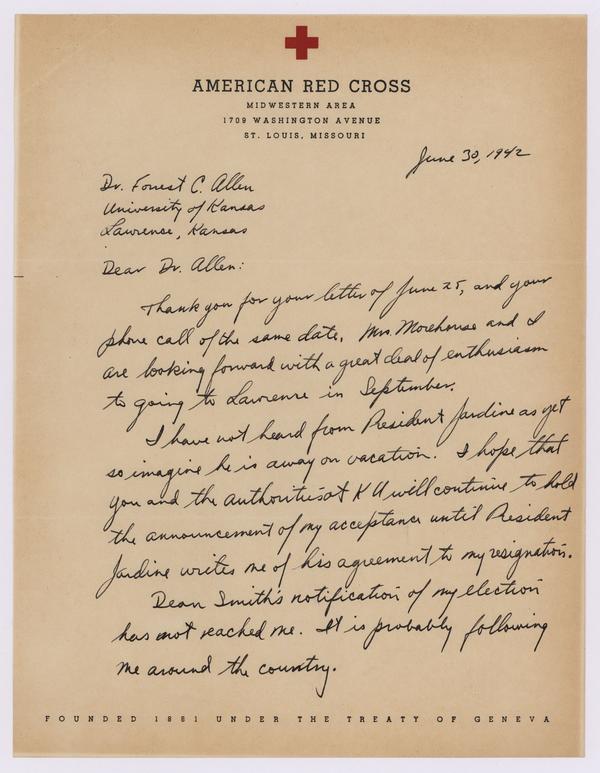 AMERICAN RED CROSS
MIDWESTERN AREA
1709 WASHINGTON AVENUE
ST. LOUIS, MISSOURI
June 30, 1942
Dr. Forrest C. Allen
University of Kansas
Lawrence, Kansas
Dear Dr. Allen:
Thank you for your letter of June 25, and your
phone call of the same date. Mrs. Morehouse and I
are looking forward with a great deal of enthusiasm
to going to Lawrence in September.
I have not heard from President Jardine as yet
so imagine he is away on vacation. I hope that
you and the authorities at K U will continue to hold
the announcement of my acceptance until President
Jardine writes me of his agreement to my resignation.
Dean Smith's notification of my election
has not reached me. It is probably following
me around the country.
FOUNDED 1881 UNDER THE TREATY OF GENEVA